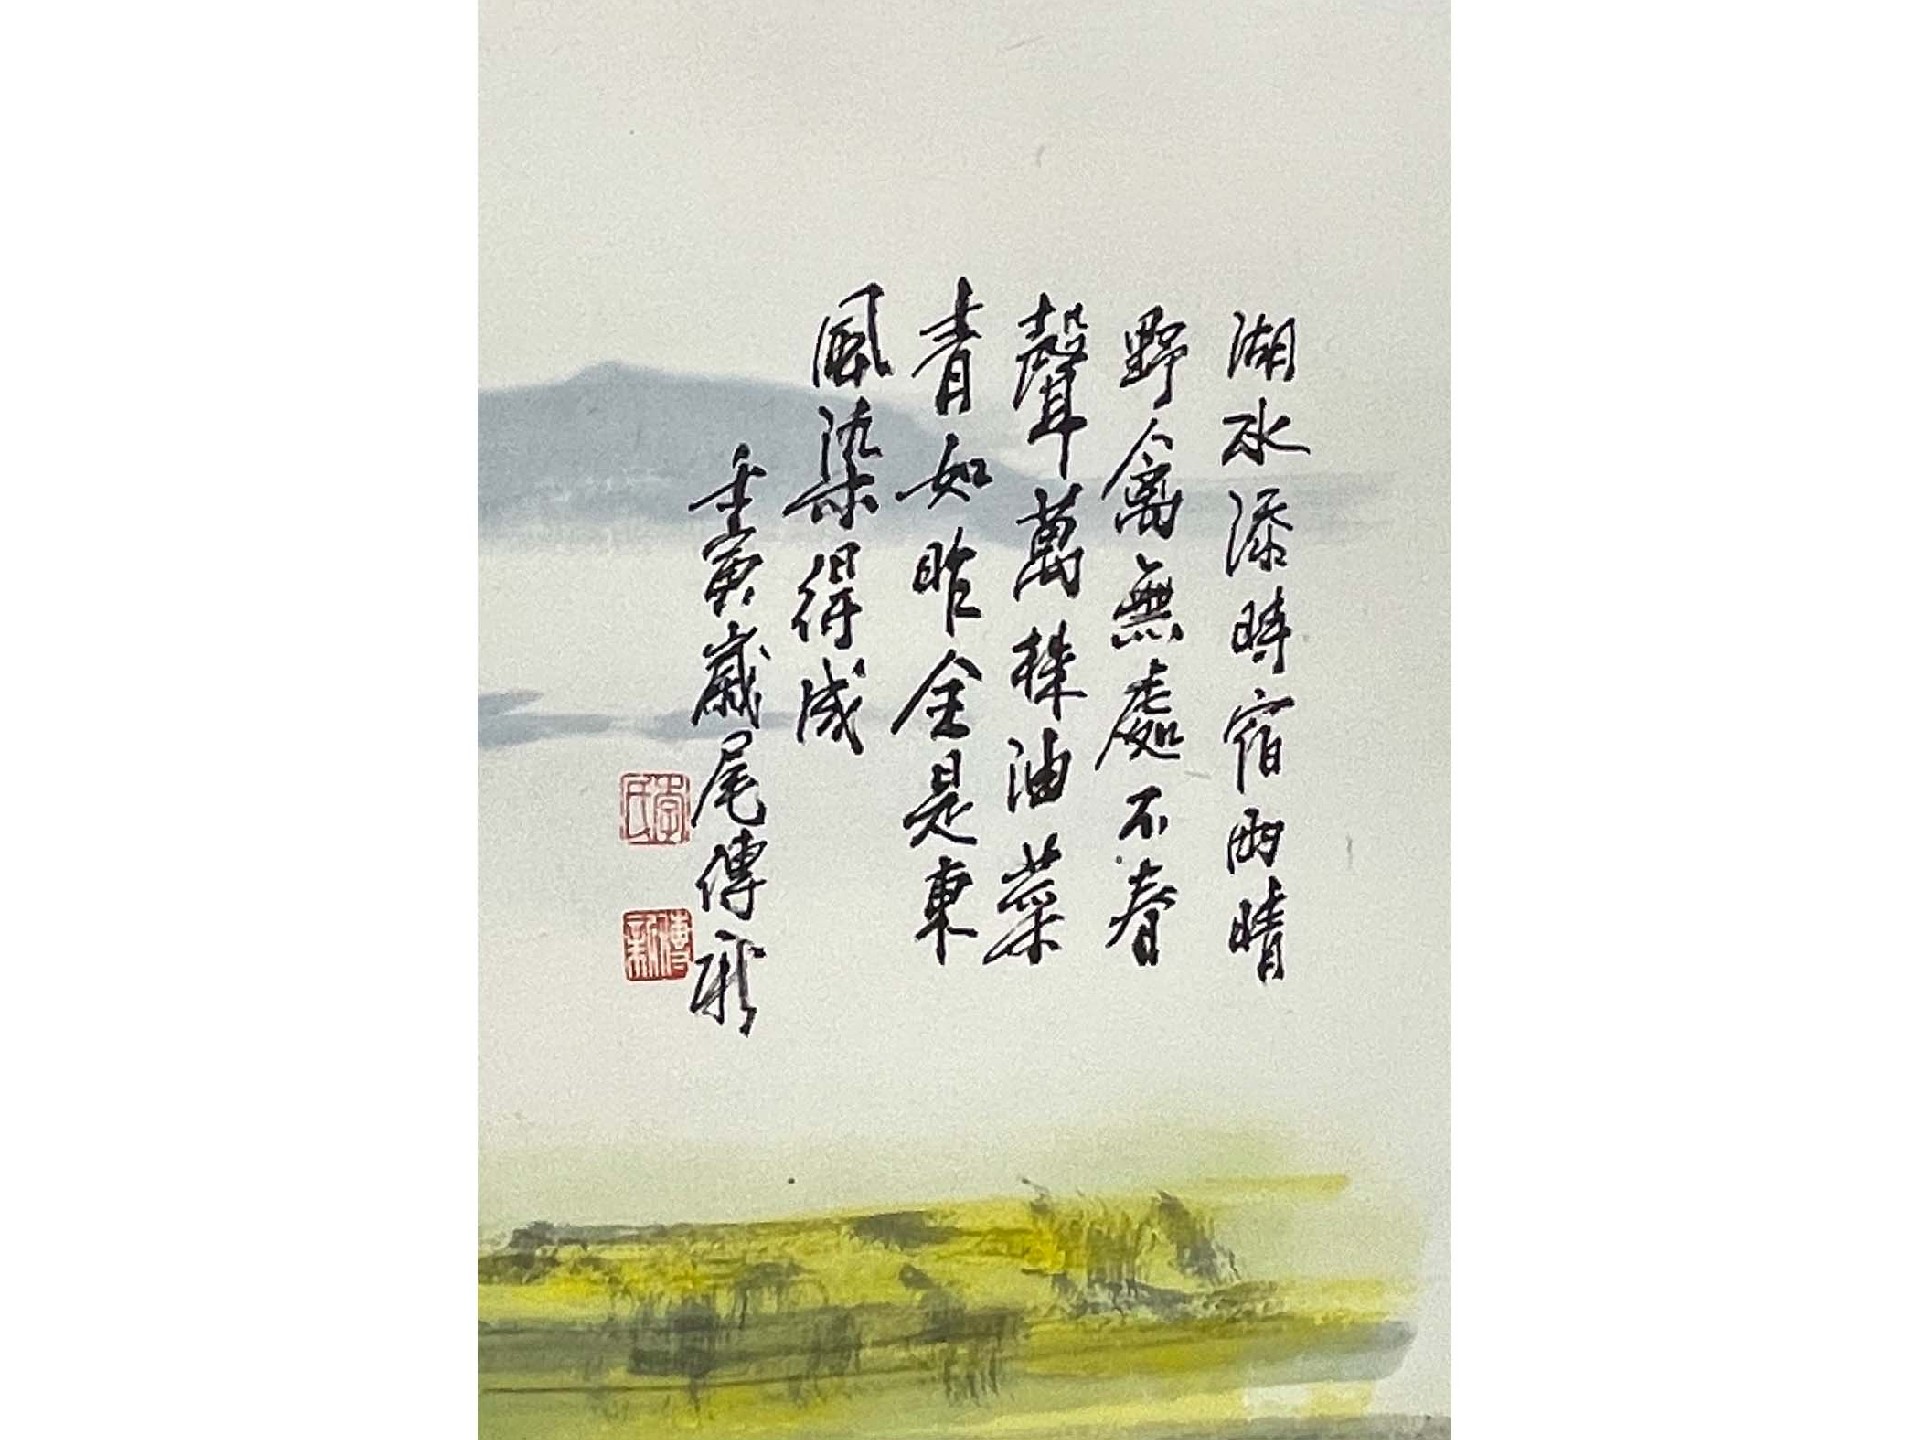 湖水添時宿雨晴
野禽無處不春
聲萬株油菜
青如昨全是東
風染得成
壬寅歲尾傳新
李氏
傳新